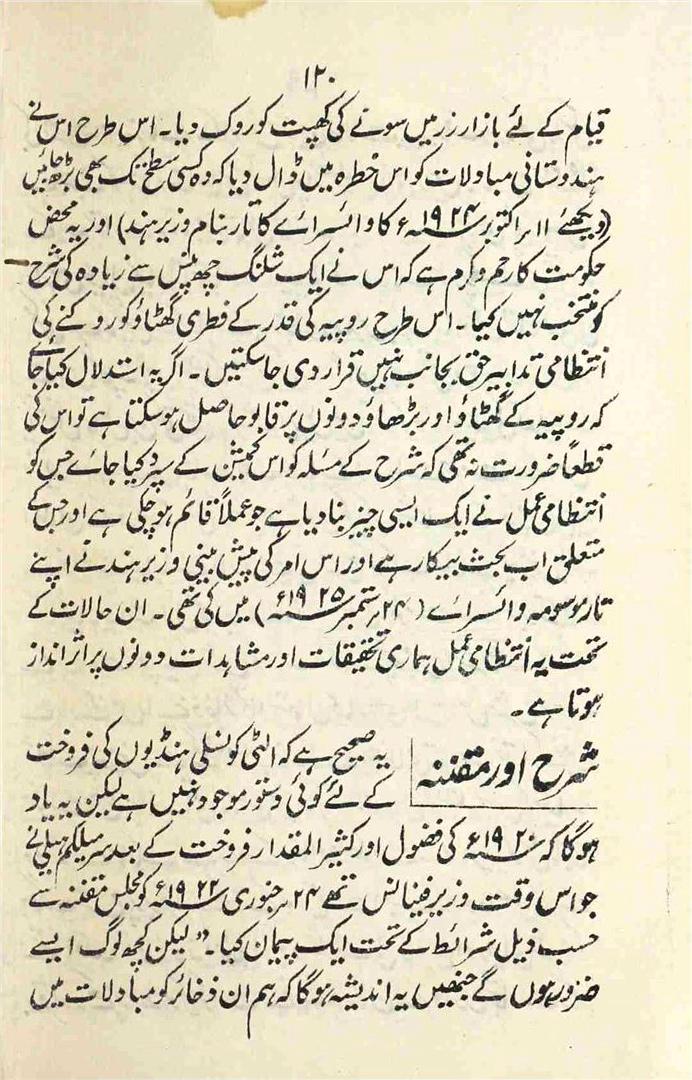 ۱۲۰
قیام کے لئے بازار زر میں سونے کی کھپت کو روک دیا۔ اس طرح اس نے
ہندوستانی مبادلات کو اس خطرہ میں ڈال دیا کہ وہ کسی سطح تک بھی بڑھ جائیں
(دیکھئے ۱۱ر اکتوبر ۱۹۲۴ء کا وائسرائے کا تار بنام وزیر ہند) اور یہ محض
حکومت کا رحم و کرم ہے کہ اس نے ایک شلنگ چھ پنس سے زیادہ کی شرح
کو منتخب نہیں کیا۔ اس طرح روپیہ کی قدر کے فطری گھٹاؤ کو روکنے کی
انتظامی تدابیر حق بجانب نہیں قرار دی جا سکتیں۔ اگر یہ استدلال کیا جائے
کہ روپیہ کے گھٹاؤ اور بڑھاؤ دونوں پر قابو حاصل ہو سکتا ہے تو اس کی
قطعاً ضرورت نہ تھی کہ شرح کے مسئلہ کو اس کمیشن کے سپرد کیا جائے جس کو
انتظامی عمل نے ایک ایسی چیز بنا دیا ہے جو عملاً قائم ہو چکی ہے اور جس کے
متعلق اب بحث بیکار ہے اور اس امر کی پیش بینی وزیر ہند نے اپنے
تار موسومہ وائسرائے (۲۴ر ستمبر ۱۹۲۵ء) میں کی تھی۔ ان حالات کے
تحت یہ انتظامی عمل ہماری تحقیقات اور مشاہدات دونوں پر اثر انداز
ہوتا ہے۔
شرح اور مقننہ
یہ صحیح ہے کہ الٹی کونسلی ہنڈیوں کی فروخت
کے لئے کوئی دستور موجود نہیں ہے لیکن یہ یاد
ہوگا کہ ۱۹۲۰ء کی فضول اور کثیر المقدار فروخت کے بعد سر میلکم ہیلی نے
جو اس وقت وزیر فینانس تھے ۲۴ر جنوری ۱۹۲۲ء کو مجلس مقننہ سے
حسب ذیل شرائط کے تحت ایک پیمان کیا۔ ”لیکن کچھ لوگ ایسے
ضرور ہوں گے جنھیں یہ اندیشہ ہوگا کہ ہم ان ذخائر کو مبادلات میں